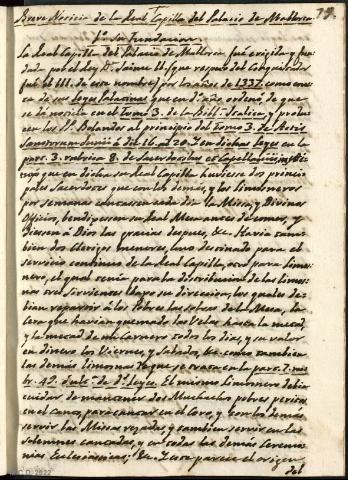 Breve Noticia de la Real Capilla del Palacio de Mallorca
79.
1.º su Fundacion.
La Real Capilla del Palacio de Mallorca fué erigida y fun-
dada por el Rey D.n Jaime II, (que respeto del Conquistador
fué el III. de este nombre) por los años de 1337. como cons-
ta de sus Leyes Palatinas que en d.ho año ordenó, de que
se da noticia en el Tomo 3. de la Bibl. Scalica, y produ-
cen los PP. Bolandos al principio del Tomo 3. de Actis
Sanctorum Junii á dia 16. al 20. En dichas Leyes en la
part. 3. rubrica 8. de Sacerdotibus et Capellanis, insti-
tuyó que en dicha su Real Capilla huviesse dos princi-
pales Sacerdotes que con los demás, y los Limosneros
por semanas cuidassen cada dia la Missa, y Divinos
Officios, bendigessen su Real Mesa antes de comer, y
diessen á Dios las gracias despues, &c. Havia tam-
bien dos Clerigos menores, uno destinado para el
servicio continuo de la Real Capilla, otro para Limos-
nero, el qual tenia para la distribucion de las limos-
nas tres Sirvientes bajo su direccion, los quales de-
bian repartir á los Pobres las sobras de la Mesa, la
Cera que havian quemado las Velas hasta la mitad,
y la mitad de un Carnero todos los dias, y su valor
en dineros los Viernes, y Sabados, &c. como tambien
las demás limosnas de que se trata en la part. 7. ru-
br. 42. de las d.s Leyes. El mismo Limosnero debia
cuidar de mantener dos Muchachos pobres peritos
en el Canto, para cantar en el Coro, y con los demás
servir las Missas rezadas, y tambien servir en las
solemnes cantadas, y en todas las demás ceremo-
nias Ecclesiasticas, &c. Este parece el origen
del